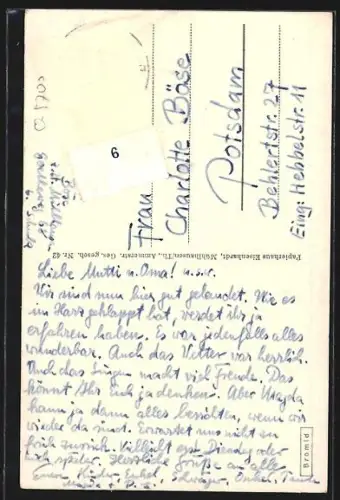 Frau
Charlotte Böse
Potsdam
Behlertstr. 27
Eing: Hebbelstr. 11
6
Papierhaus Eisenhardt, Mühlhausen/Th., Ammerstr. Ges. gesch. Nr. 42
Liebe Mutti u. Oma! u.s.w.
Wir sind nun hier gut gelandet. Wie es
im Harz geklappt hat, werdet ihr ja
erfahren haben. Es war jedenfalls alles
wunderbar. Auch das Wetter war herrlich.
Auch das Singen macht viel Freude. Das
könnt Ihr Euch ja denken. Aber Magda
kann ja dann alles berichten, wenn wir
wieder da sind. Erwartet uns nicht zu
früh zurück. Vielleicht erst Dienstag oder
noch später. Herzliche Grüße an alle
Bromid